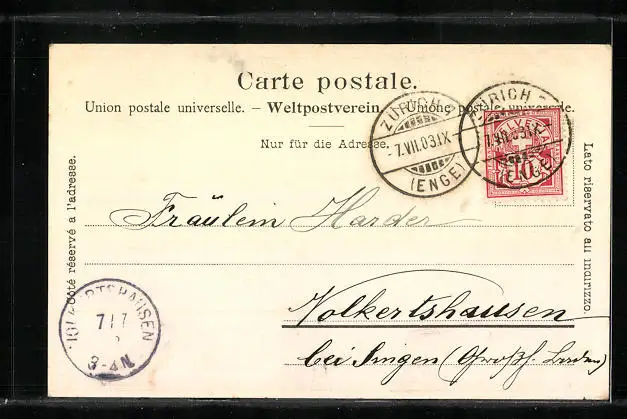 Carte postale.
Union postale universelle. – Weltpostverein. – Unione postale universale.
Nur für die Adresse.
Côté réservé a l'adresse.
Lato riservato all indirizzo.
ZÜRICH 2
-7.VII.03.IX-
(ENGE)
ZÜRICH 2
-7.VII.03.IX-
(ENGE)
HELVETIA
10
Fräulein Harder
Volkertshausen
bei Singen (Großh. Baden)
VOLKERTSHAUSEN
7 / 7
3-4N.